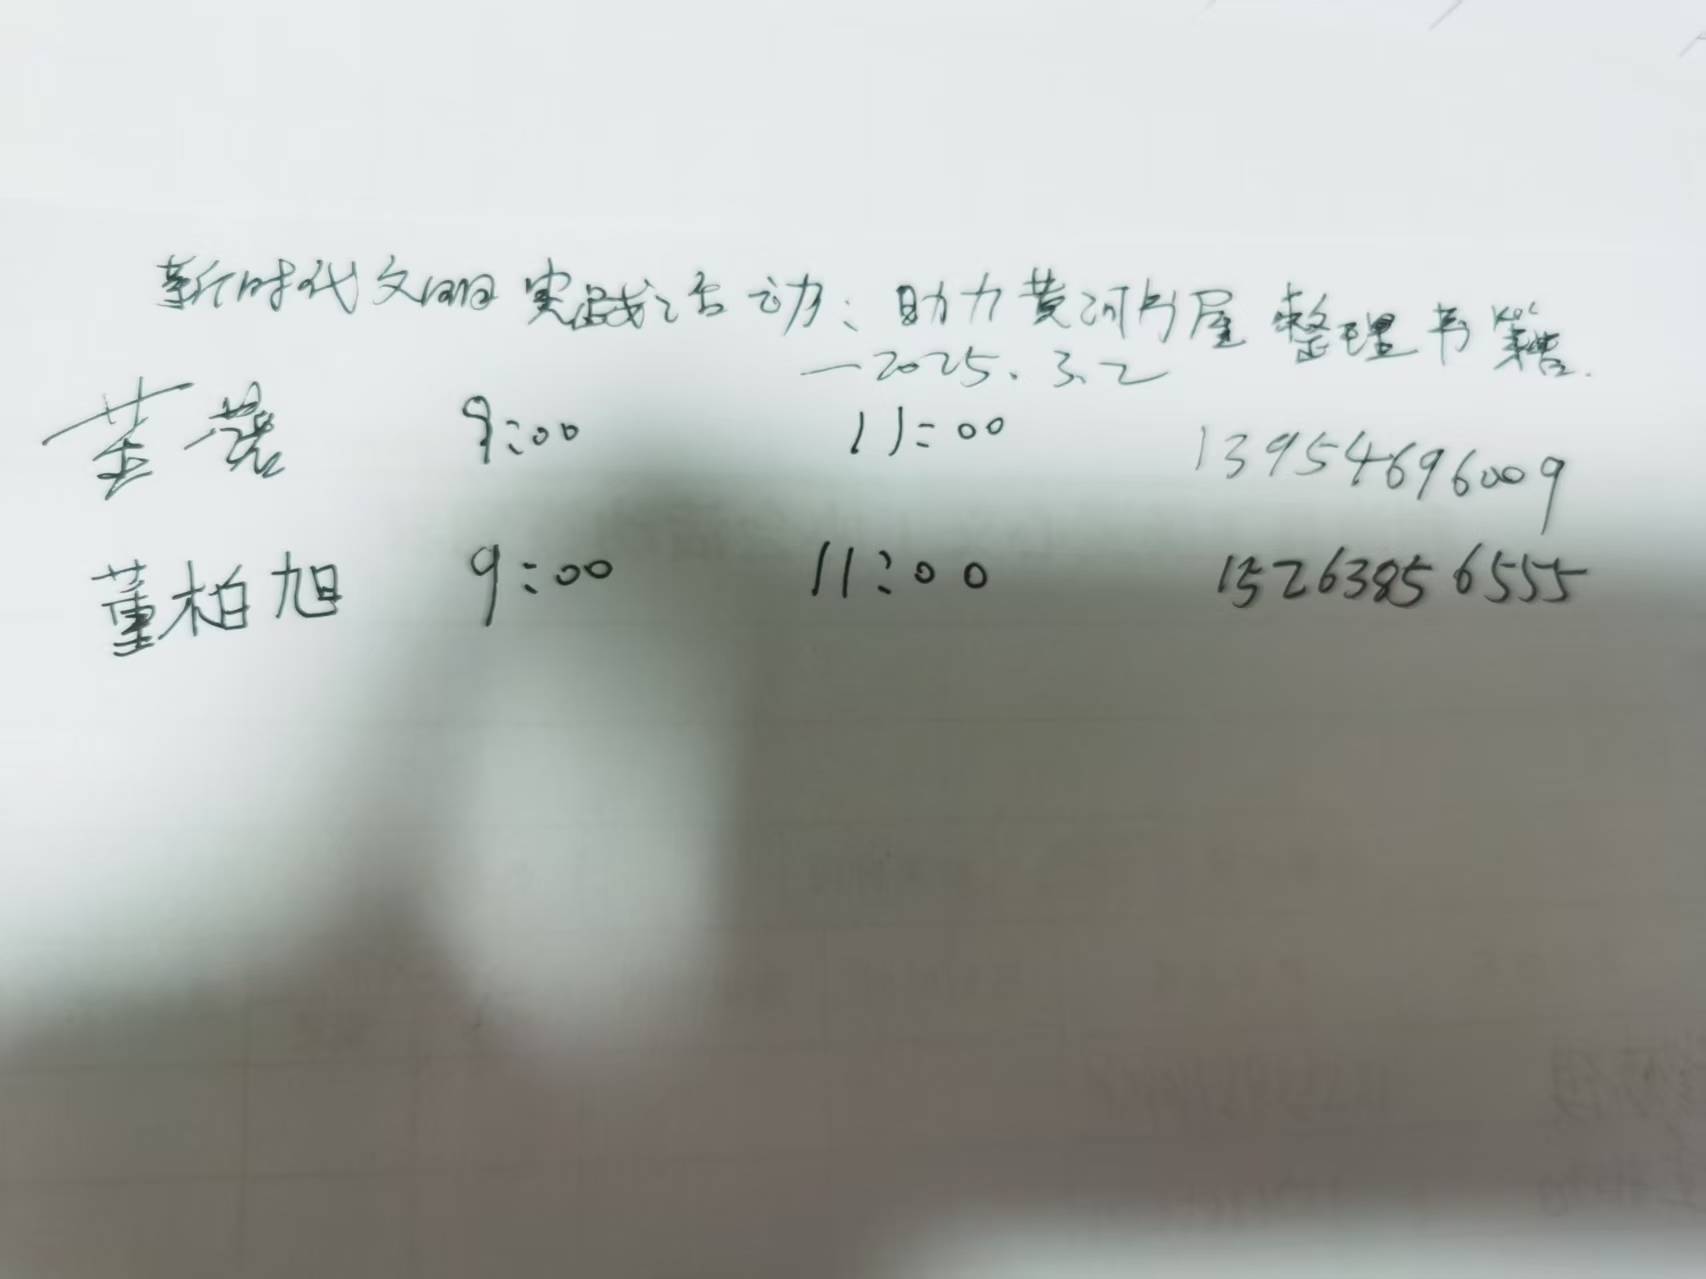 新时代文明实践活动：助力黄河书屋整理书籍.
—2025.3.2
董 9:00 11:00 13954696009
董柏旭 9:00 11:00 15263856555